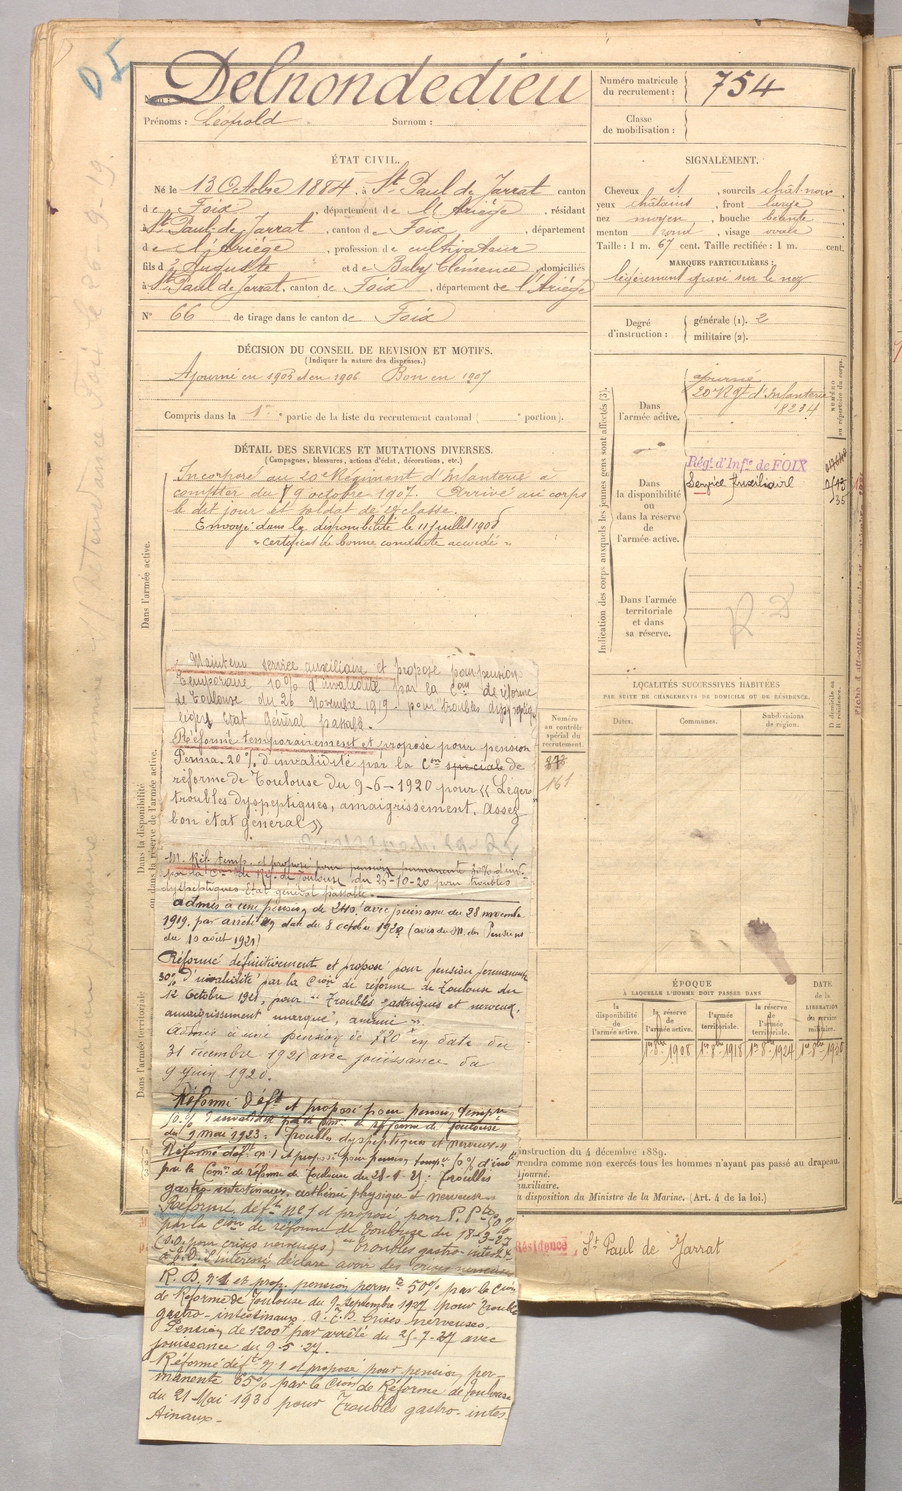 D I
Nom : Delnondedieu
Prénoms : Léopold . Surnom :
Numéro matricule
du recrutement : 754
Classe
de mobilisation :
ÉTAT CIVIL.
Né le 13 Octobre 1884, à St Paul de Jarrat canton
de Foix, département de l'Ariège, résidant
St Paul de Jarrat, canton de Foix, département
de l'Ariège, profession de cultivateur
fils d'Auguste et de Baby Clémence, domiciliés
à St Paul de Jarrat, canton de Foix, département de l'Ariège
N° 66 de tirage dans le canton de Foix
SIGNALEMENT.
Cheveux et, sourcils chât-noir,
yeux châtains, front large,
nez moyen, bouche béante,
menton rond, visage ovale
Taille : 1 m. 67 cent. Taille rectifiée : 1 m. cent.
MARQUES PARTICULIÈRES :
légèrement gravé sur le nez
Degré
d'instruction :
générale (1). 2
militaire (2).
DÉCISION DU CONSEIL DE REVISION ET MOTIFS.
(Indiquer la nature des dispenses.)
Ajourné en 1905 et en 1906 Bon en 1907
Compris dans la 1re partie de la liste du recrutement cantonal ( e portion).
DÉTAIL DES SERVICES ET MUTATIONS DIVERSES.
(Campagnes, blessures, actions d'éclat, décorations, etc.)
Dans l'armée active.
Incorporé au 20e Régiment d'Infanterie à
compter du 9 octobre 1907. Arrivé au corps
le dit jour et soldat de 2e classe.
Envoyé dans la disponibilité le 11 juillet 1908
"certificat de bonne conduite accordé"
Indication des corps auxquels les jeunes gens sont affectés (3).
Dans
l'armée active.
ajourné
20e Rgt d'Infanterie
8234
Dans
la disponibilité
ou
dans la réserve
de
l'armée active.
Régt d'Infie de FOIX
Service Auxiliaire
Dans l'armée
territoriale
et dans
sa réserve.
R D
LOCALITÉS SUCCESSIVES HABITÉES
PAR SUITE DE CHANGEMENTS DE DOMICILE OU DE RÉSIDENCE.
Dates.
Communes.
Subdivisions
de région.
Numéro
au contrôle
spécial du
recrutement.
161
Dans la disponibilité
ou dans la réserve de l'armée active.
Maintenu service auxiliaire et proposé pour pension
temporaire 10% d'invalidité par la Con de réforme
de Toulouse du 26 Novembre 1919 pour troubles dyspeptiq
légers Etat Général passable.
Réformé temporairement et proposé pour pension
Perma. 20% d'invalidité par la Con spéciale de
réforme de Toulouse du 9-6-1920 pour «Légers
troubles dyspeptiques, amaigrissement. Assez
bon état général»
M. Réf. temp. et proposé pour pension permanente 20% d'inv.
par la Con de Rf. de Toulouse du 25-10-20 pour troubles
dyspeptiques Etat général passable.
admis à une pension de 240f avec jouissance du 28 novembre
1919, par arrêté en date du 8 octobre 1920 (avis du M. des Pensions
du 10 août 1921)
Réformé définitivement et proposé pour pension permanente
30% d'invalidité par la Cion de réforme de Toulouse du
12 Octobre 1921, pour "Troubles gastriques et nerveux,
amaigrissement marqué, anémie".
Admis à une pension de 720f en date du
31 décembre 1921 avec jouissance du
9 juin 1920.
Dans l'armée territoriale
Réformé déft et proposé pour pension tempre
d'invalidité par la Com. de réforme de Toulouse
du 9 mai 1923 : "Troubles dyspeptiques et nerveux"
Réformé déft n° 1 et proposé pour pension tempre
par la Com. de réforme de Toulouse : Troubles
gastro intestinaux, asthénie physique et nerveuse
Réformé déft n° 1 et proposé pour P. Pte
par la Cion de réforme de Toulouse du 18-3-27
(S.O. pour crises nerveuses) "troubles gastro-intest.
l'intéressé déclare avoir des crises nerveuses
R. D. n° 1 et prop. pension permte 50% par la Cion
de Réforme de Toulouse du 9 Septembre 1927 pour Trouble
gastro-intestinaux. Crises nerveuses.
Pension de 1200f par arrêté du 25-7-27 avec
jouissance du 9-5-27.
Réformé déft n° 1 et proposé pour pension per-
manente 65% par la Cion de Réforme de Toulouse
du 21 Mai 1930 pour Troubles gastro-intes
tinaux.
ÉPOQUE
À LAQUELLE L'HOMME DOIT PASSER DANS
la
disponibilité
de
l'armée active.
la réserve
de
l'armée active.
l'armée
territoriale.
la réserve
de
l'armée
territoriale.
DATE
de la
LIBÉRATION
du service
militaire.
1er 8bre 1908
1er 8bre 1918
1er 8bre 1924
instruction du 4 décembre 1889.
rendra comme non exercés tous les hommes n'ayant pas passé au drapeau.
ajourné.
auxiliaire.
a disposition du Ministre de la Marine. (Art. 4 de la loi.)
Résidence St Paul de Jarrat